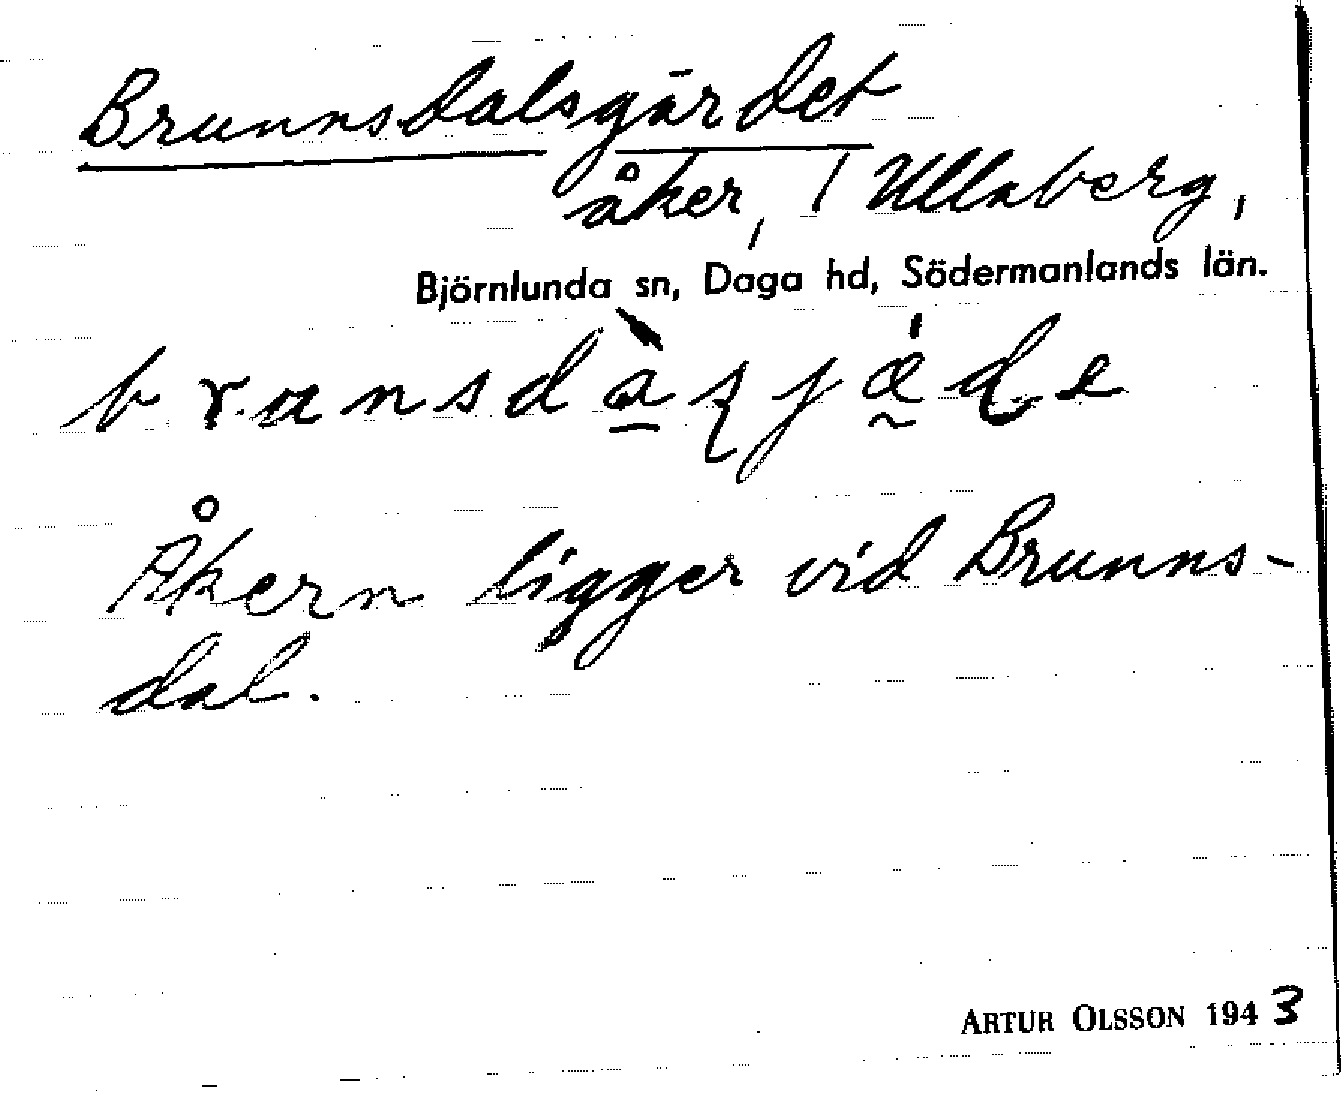 Brunnsdalsgärdet
åker, / Ullaberg,
Björnlunda sn, Daga hd, Södermanlands län.
Åkern ligger vid Brunns-
dal.
ARTUR OLSSON 1943